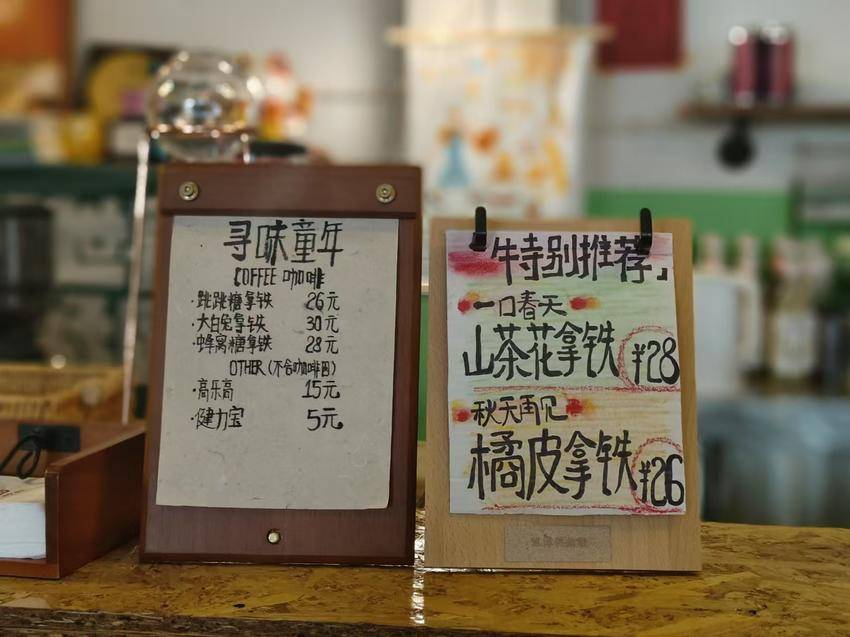 寻味童年
COFFEE 咖啡
·跳跳糖拿铁 26元
·大白兔拿铁 30元
·蜂窝糖拿铁 28元
OTHER(不含咖啡因)
·高乐高 15元
·健力宝 5元
「特别推荐」
一口春天
山茶花拿铁 ¥28
秋天再见
橘皮拿铁 ¥26